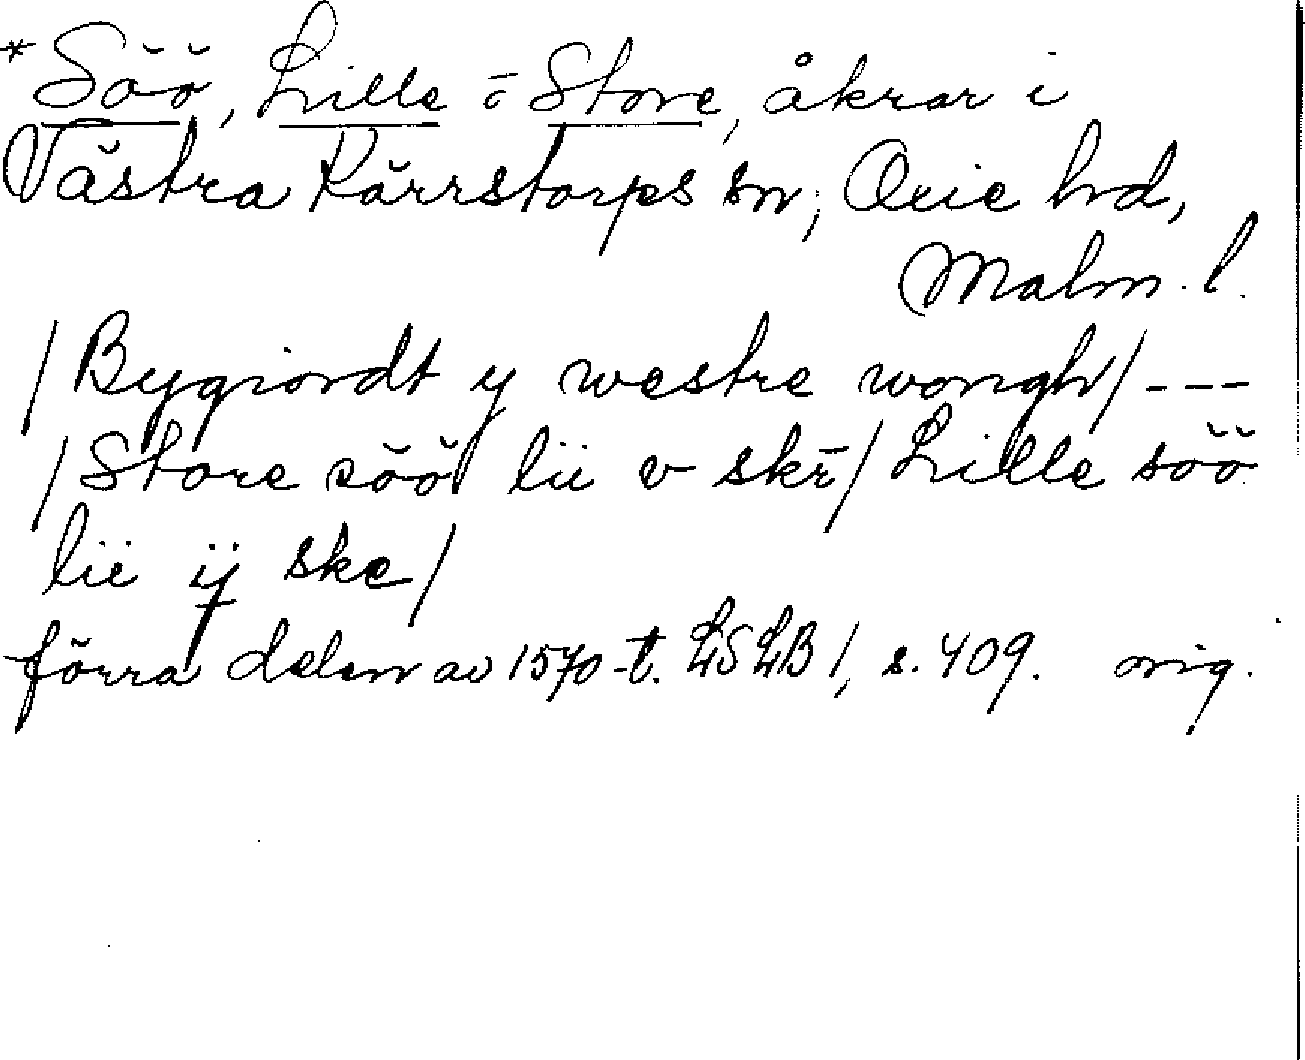 *Söö, Lille o Store, åkrar i
Västra Kärrstorps sn, Oxie hd,
Malm. l.
/Bygiordt y westre wongh/ ---
/Store söö lii v skr̄/ Lille söö
lii ij ske/
förra delen av 1570-t. LSLB 1, s. 409. orig.